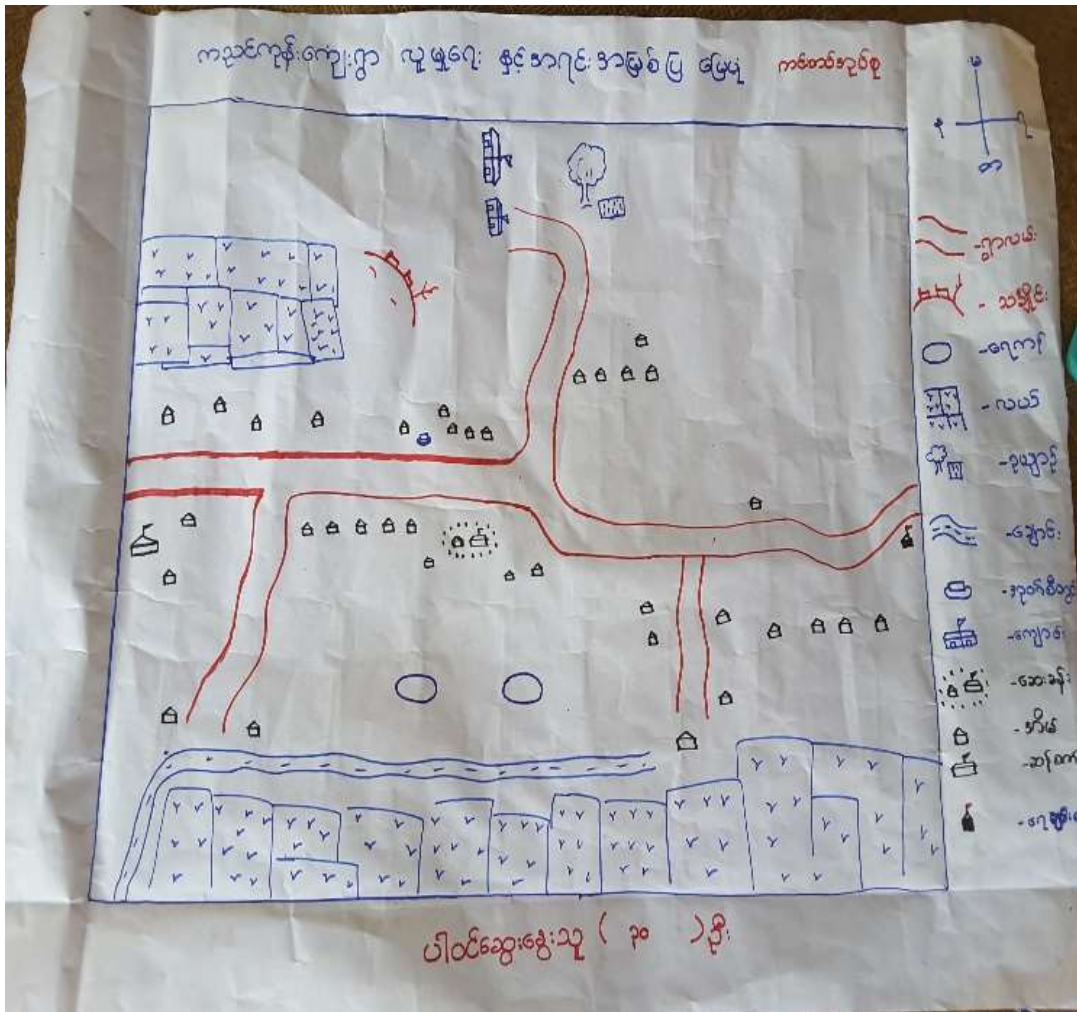 ကညင်ကုန်းကျေးရွာ လူမှုရေး နှင့် အရင်းအမြစ်ပြ မြေပုံ
မ
န
တ
-ရွာလမ်း
- သင်္ချိုင်း
-ရေကန်
- လယ်
-ဥယျာဉ်
-ချောင်း
-ကျောင်း
-ဆေးခန်း
-အိမ်
-ဆန်စက်
ပါဝင်ဆွေးနွေးသူ ( ၃၀ ) ဦး